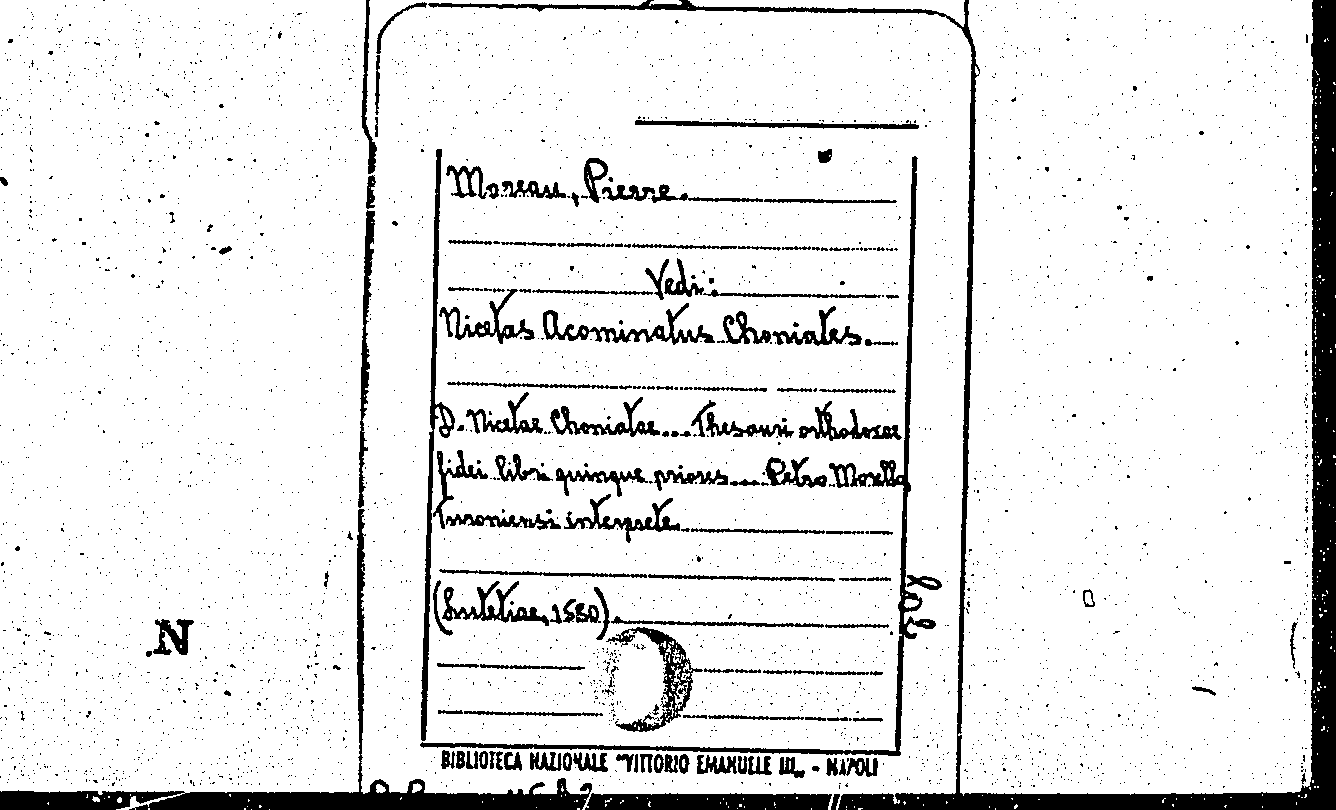 Moreau, Pierre.
Vedi:
Nicetas Acominatus Choniates.
D. Nicetae Choniatae... Thesauri orthodoxae
fidei libri quinque priores... Petro Morello
Turoniensi interprete.
(Lutetiae, 1580).
BIBLIOTECA NAZIONALE "VITTORIO EMANUELE III„ - NAPOLI
.N